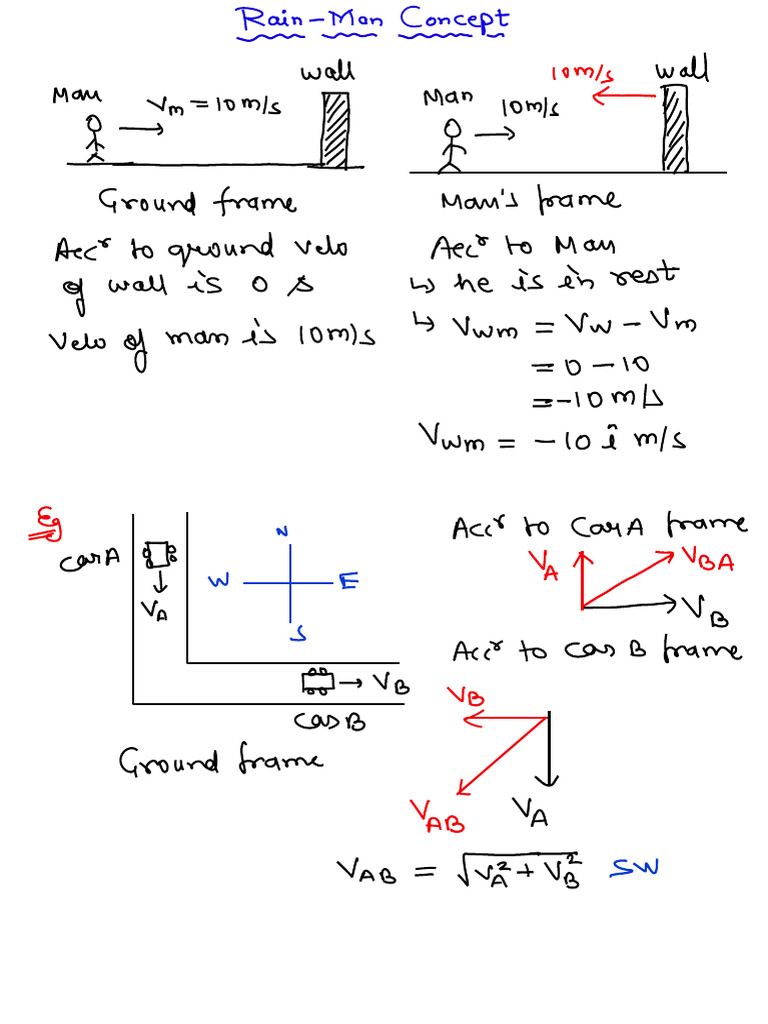 Rain-Man Concept
Man
Vm = 10 m/s
wall
Ground frame
Accr to ground velo
of wall is 0 &
Velo of man is 10m/s
Man
10m/s
10m/s
wall
Man's frame
Accr to Man
↳ he is in rest
↳ Vwm = Vw - Vm
= 0 - 10
= -10 m/s
Vwm = -10 î m/s
Eg
car A
VA
N
W
E
S
VB
Car B
Ground frame
Accr to Car A frame
VA
VBA
VB
Accr to Car B frame
VB
VAB
VA
VAB = √VA² + VB² SW